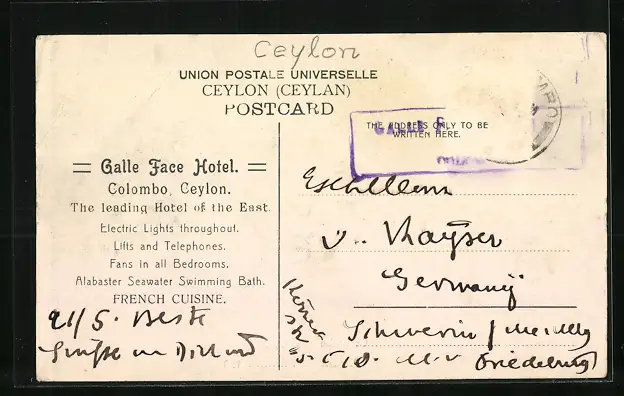 Ceylon
UNION POSTALE UNIVERSELLE
CEYLON (CEYLAN)
POSTCARD
THE ADDRESS ONLY TO BE
WRITTEN HERE.
GALLE F
Galle Face Hotel.
Colombo, Ceylon.
The leading Hotel of the East.
Electric Lights throughout.
Lifts and Telephones.
Fans in all Bedrooms.
Alabaster Seawater Swimming Bath.
FRENCH CUISINE.
21/5. Beste
Grüße
v. Kayser
Germany
Schwerin /